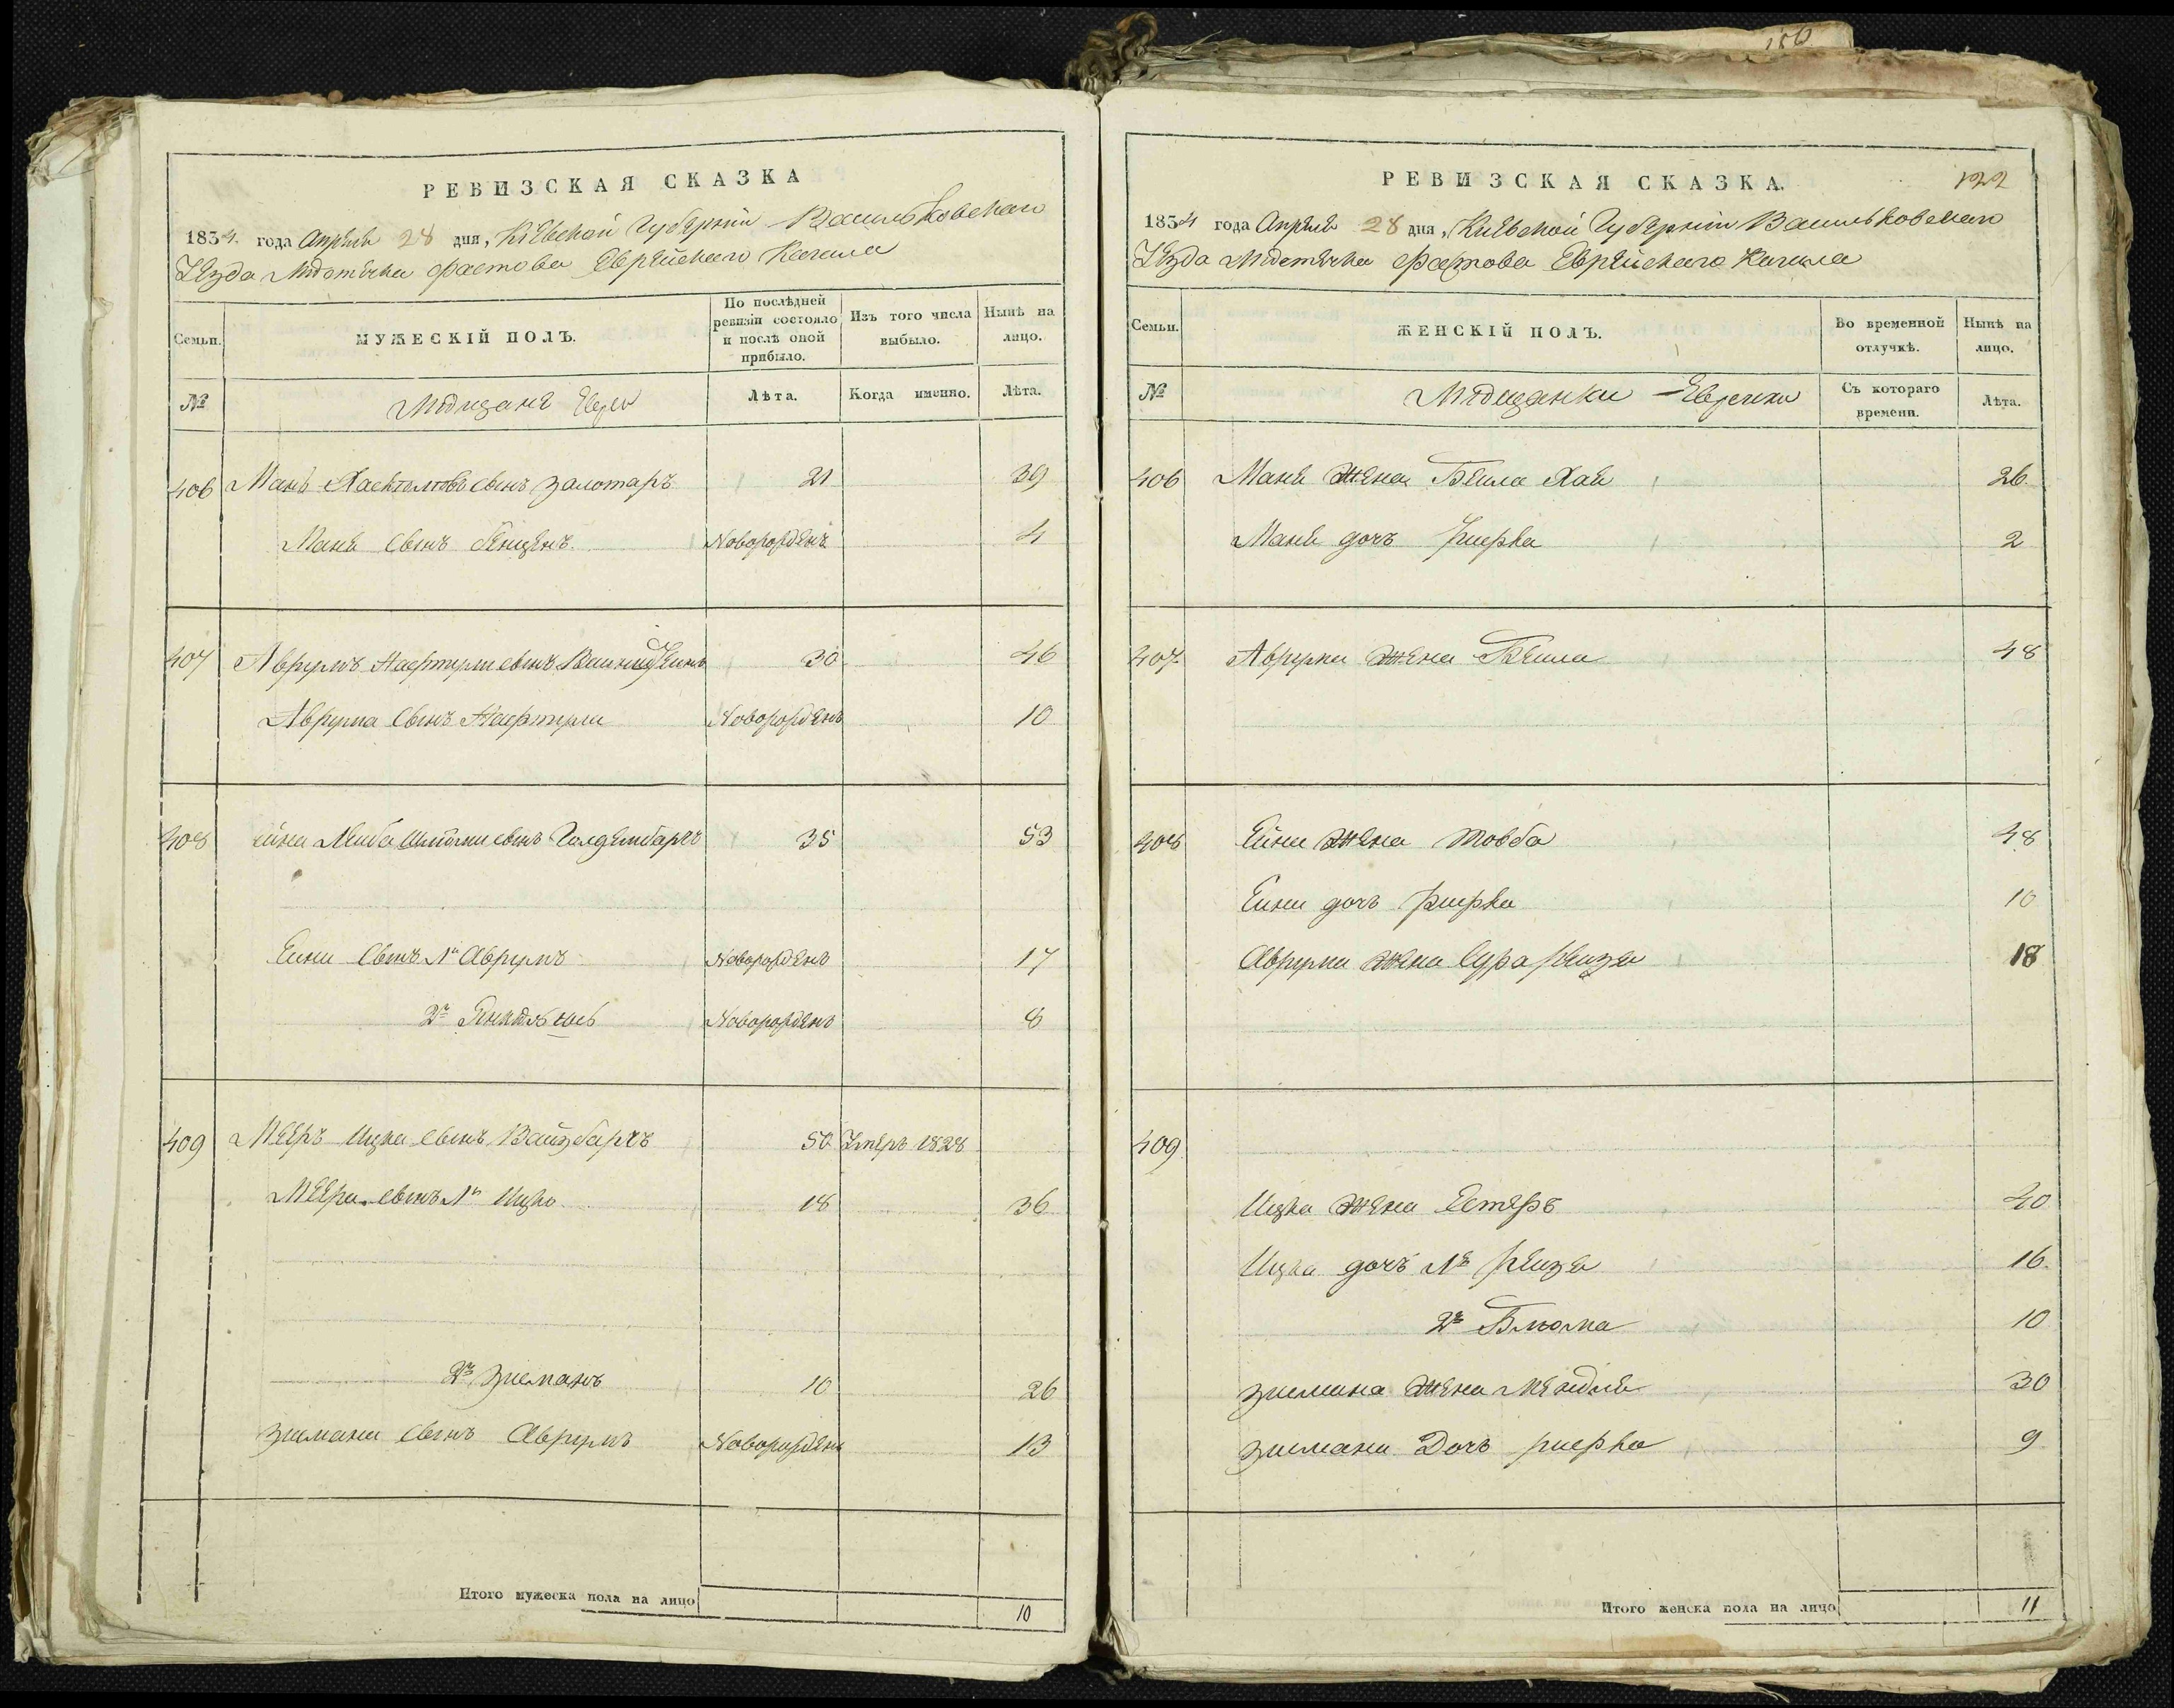 186
РЕВИЗСКАЯ СКАЗКА
1834 года Апреля 28 дня, Кіевской Губерніи Васильковскаго
Уезда Местечка Фастова Еврейскаго Кагала
Семьи.
МУЖЕСКІЙ ПОЛЪ.
По послѣдней ревизіи состояло и послѣ оной прибыло.
Изъ того числа выбыло.
Нынѣ на лицо.
№
Мещане Евреи
Лѣта.
Когда именно.
Лѣта.
406 Мань сынъ Залотаръ 21 39
Маня сынъ Новорожденъ 4
407 Аврумъ Нафтули сынъ 30 46
Аврума сынъ Нафтули Новорожденъ 10
408 Ейна Лейба сынъ Голдембаргъ 35 53
Ейни сынъ 1й Аврумъ Новорожденъ 17
2й Новорожденъ 8
409 Мееръ Ицка сынъ Вайзбаргъ 50 Умеръ 1828
Меера сынъ 1й Ицко 18 36
2й Зисманъ 10 26
Зисмана сынъ Аврумъ Новорожденъ 13
Итого мужеска пола на лицо 10
РЕВИЗСКАЯ СКАЗКА.
122
1834 года Апреля 28 дня, Кіевской Губерніи Васильковскаго
Уезда Местечка Фастова Еврейскаго Кагала
Семьи.
ЖЕНСКІЙ ПОЛЪ.
Во временной отлучкѣ.
Нынѣ на лицо.
№
Мещанки Еврейки
Съ котораго времени.
Лѣта.
406 Маня жена Бейла Хая 26
Маня дочъ Ривка 2
407 Аврума жена Бейла 48
408 Ейни жена Товба 48
Ейни дочъ Ривка 10
Аврума жена Сура Рейзя 18
409
Ицка жена Естеръ 40
Ицка дочъ 1я Рейзя 16
2я Блюма 10
Зисмана жена Мендля 30
Зисмана Дочъ Ривка 9
Итого женска пола на лицо 11